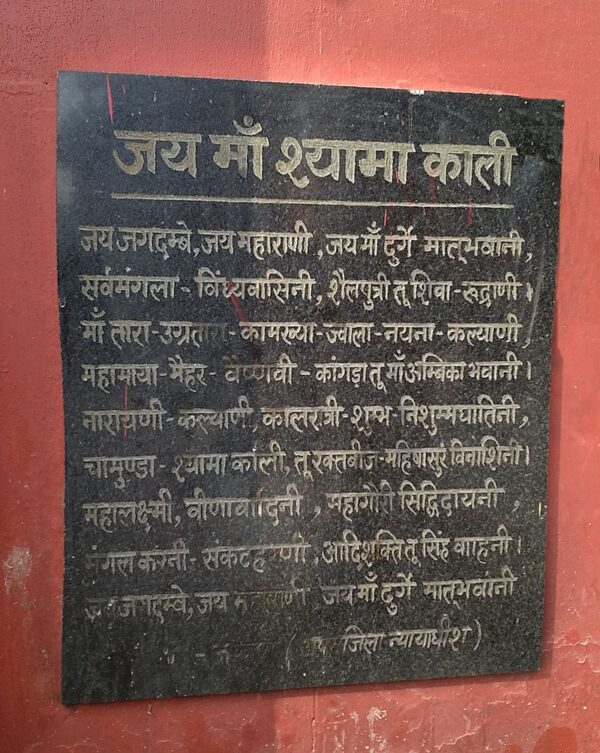 जय माँ श्यामा काली
जय जगदम्बे, जय महाराणी, जय माँ दुर्गे मातृभवानी,
सर्वमंगला - विंध्यवासिनी, शैलपुत्री तू शिवा - रूद्राणी।
माँ तारा - उग्रतारा - कामख्या - ज्वाला - नयना - कल्याणी,
महामाया - मैहर - वैष्णवी - कांगड़ा तू माँ अम्बिका भवानी।
नारायणी - कल्याणी, कालरत्री - शुम्भ - निशुम्भघातिनी,
चामुण्डा - श्यामा काली, तू रक्तबीज - महिषासुर विनाशिनी।
महालक्ष्मी, वीणावादिनी, महागौरी सिद्विदायनी,
मंगल करनी - संकटहरणी, आदिशक्ति तू सिंह वाहनी।
जय जगदम्वे, जय महाराणी जय माँ दुर्गे मातृभवानी
जिला न्यायाधीश)